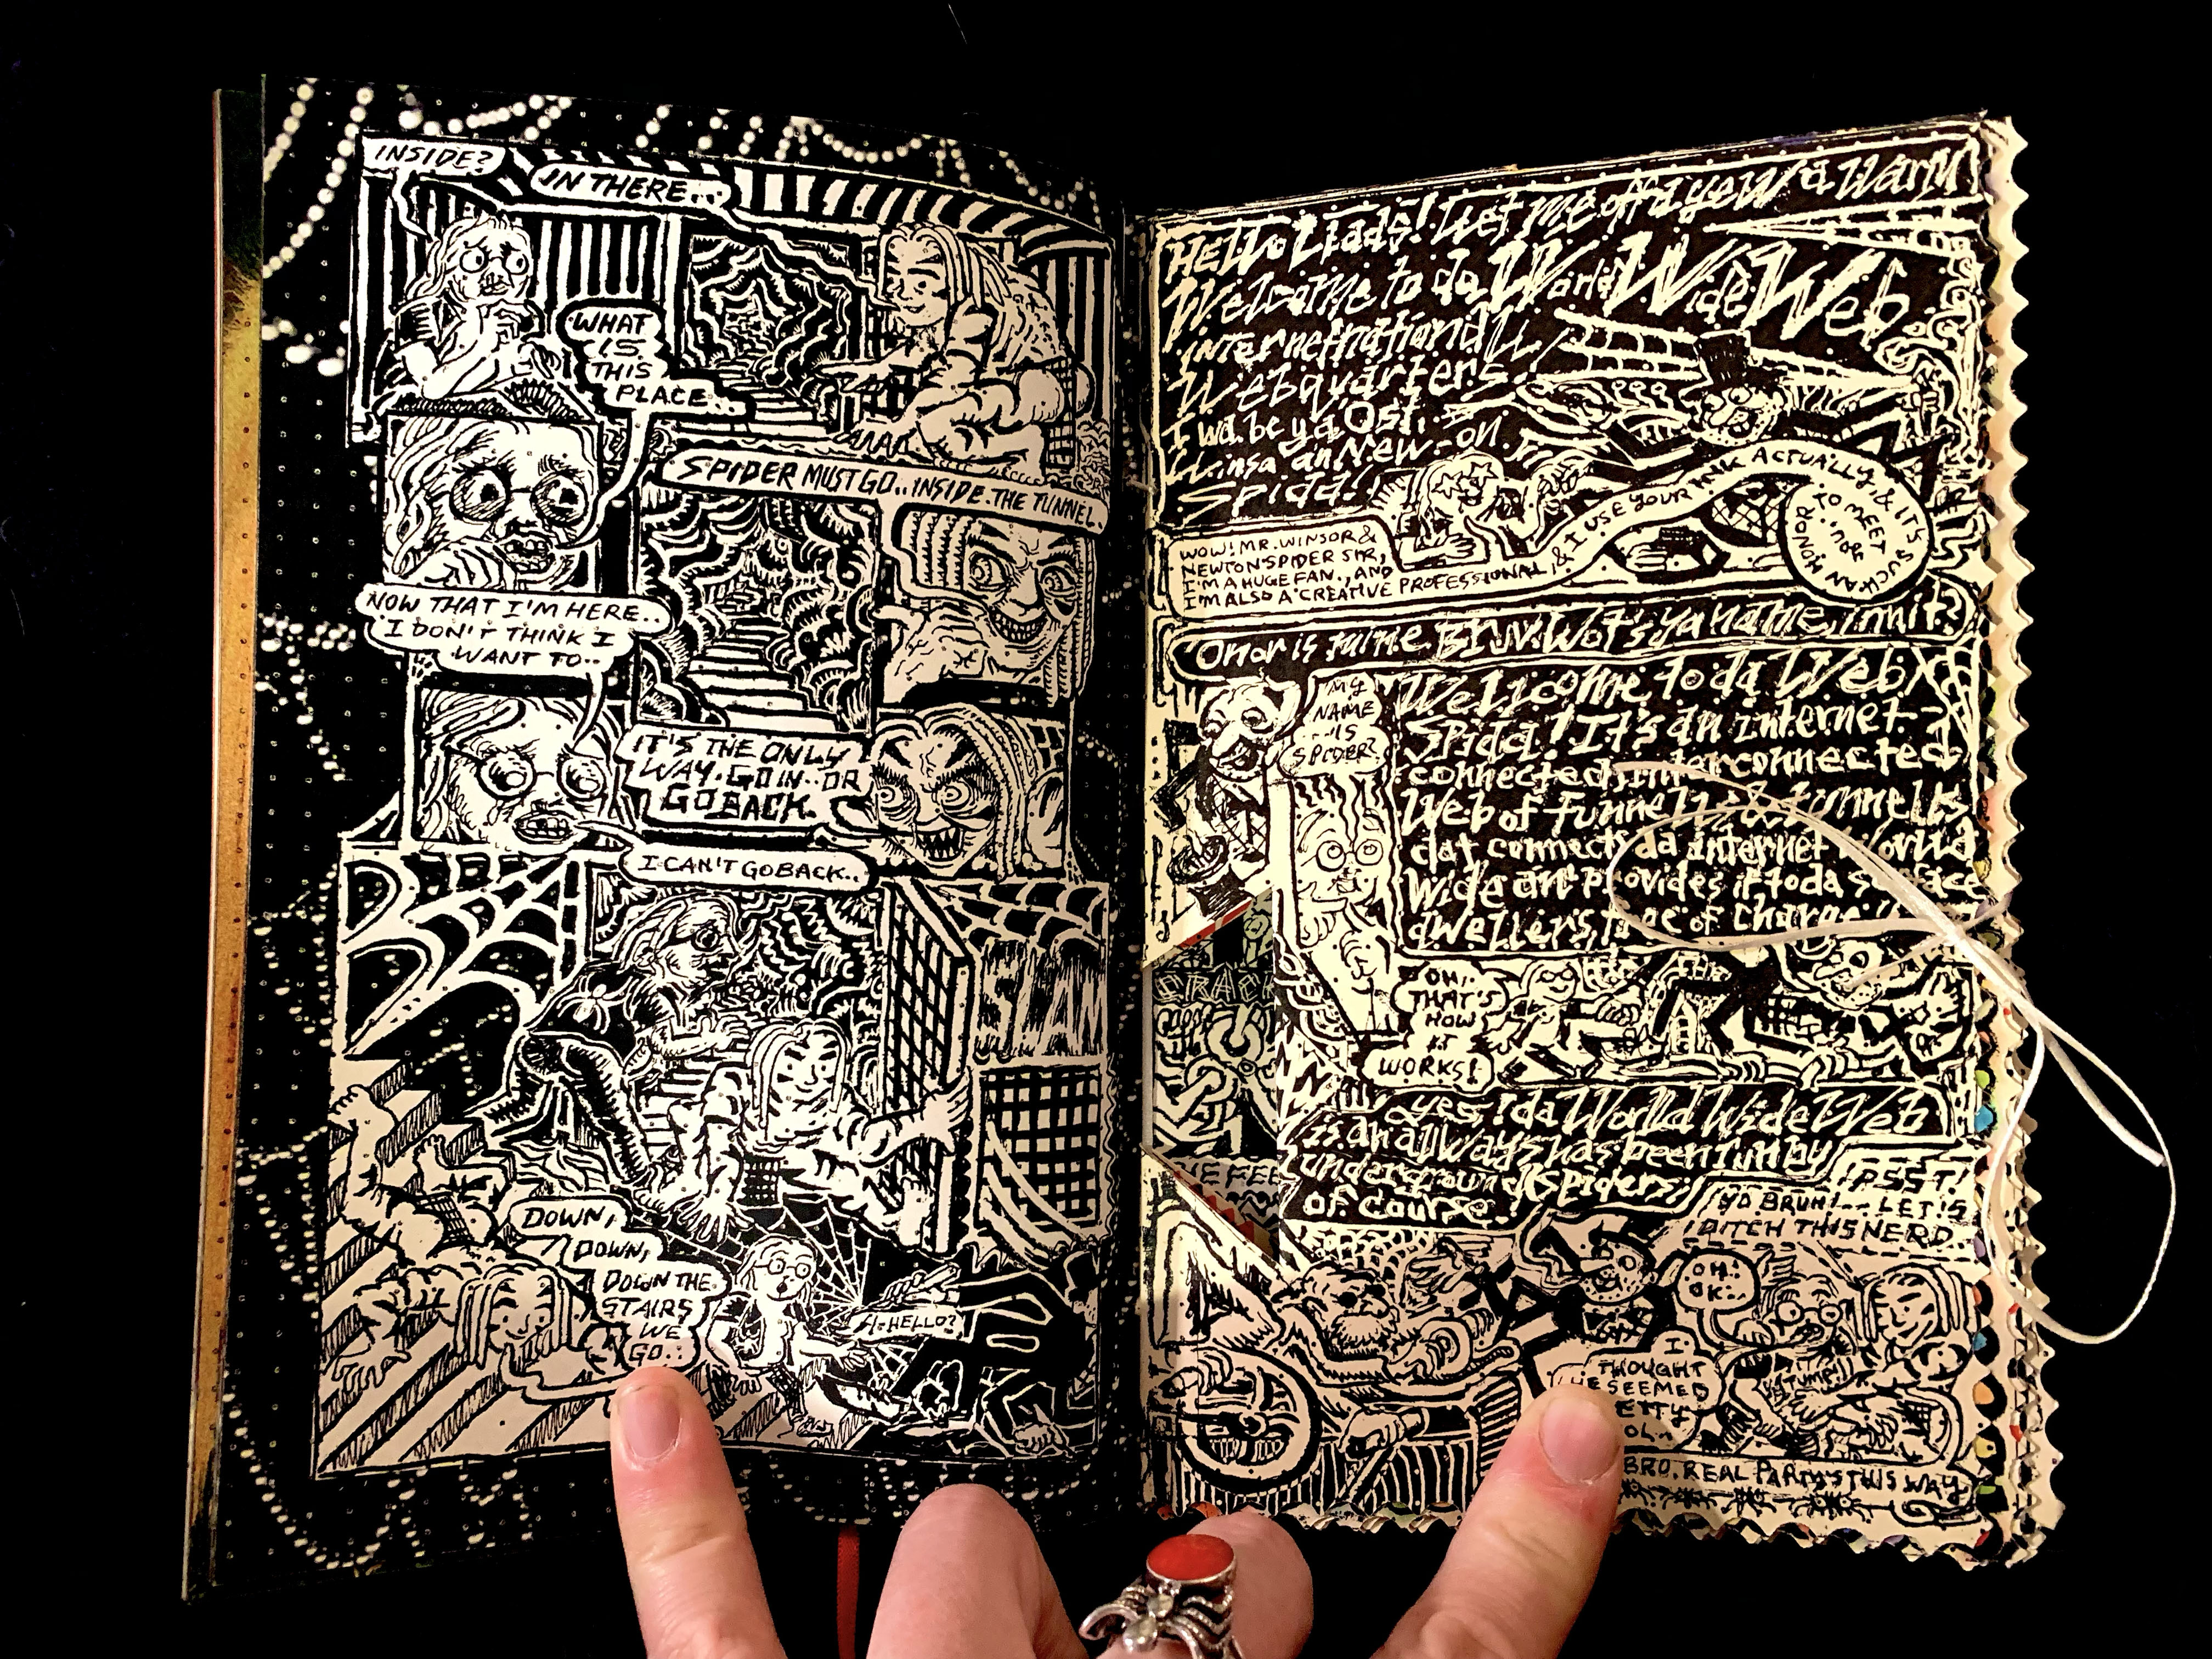 INSIDE?
IN THERE...
WHAT
IS
THIS
PLACE...
SPIDER MUST GO.. INSIDE. THE TUNNEL.
NOW THAT I'M HERE..
I DON'T THINK I
WANT TO..
IT'S THE ONLY
WAY. GO IN.. OR
GO BACK.
I CAN'T GO BACK..
SLAM
DOWN,
DOWN,
DOWN THE
STAIRS
WE
GO..
A-HELLO?
Hello Liads! Let me offa yew a Warm
Welcome to da World Wide Web
internetnationall
Webquarters!
I wd. be ya Ost,
Winsa an New-on
Spida!
WOW! MR. WINSOR &
NEWTON SPIDER SIR,
I'M A HUGE FAN., AND
I'M ALSO A CREATIVE PROFESSIONAL, & I USE YOUR INK ACTUALLY, & IT'S SUCH AN HONOR TO MEET YOU.
Onor is mine Bruv. Wot's ya name, innit?
MY
NAME
IS
SPIDER!
Wellcome to da Web
Spida! It's an internet-
connected, interconnected
Web of funnells & tunnells
dat connects da internet World
Wide an provides it to da surface
dwellers, free of charge!
OH!
THAT'S
HOW
IT
WORKS!
CRACK
yes! da World Wide Web
is an allways has been run by
underground spiders,
of course!
PSST!
YO BRUH!... LET'S
DITCH THIS NERD
OH!
OK..
I
THOUGHT
HE SEEMED
BRO. REAL PARTY'S THIS WAY